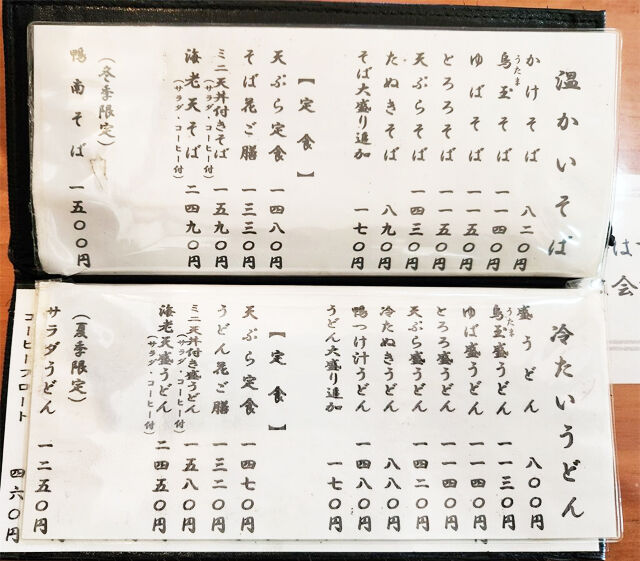 温かいそば
かけそば 八二〇円
烏玉そば 一一四〇円
うたま
ゆばそば 一一五〇円
とろろそば 一一五〇円
天ぷらそば 一四三〇円
たぬきそば 八九〇円
そば大盛り追加 一七〇円
【定食】
天ぷら定食 一四八〇円
そば花ご膳 一三三〇円
ミニ天丼付きそば 一五九〇円
(サラダ・コーヒー付)
海老天そば 二四九〇円
(サラダ・コーヒー付)
(冬季限定)
鴨南そば 一五〇〇円
冷たいうどん
盛うどん 八〇〇円
烏玉盛うどん 一一三〇円
うたま
ゆば盛うどん 一一四〇円
とろろ盛うどん 一一四〇円
天ぷら盛うどん 一四二〇円
冷たぬきうどん 八八〇円
鴨つけ汁うどん 一四八〇円
うどん大盛り追加 一七〇円
【定食】
天ぷら定食 一四七〇円
うどん花ご膳 一三二〇円
ミニ天丼付き盛うどん 一五八〇円
(サラダ・コーヒー付)
海老天盛うどん 二四五〇円
(サラダ・コーヒー付)
(夏季限定)
サラダうどん 一二五〇円
コーヒーフロート 四六〇円
は
会